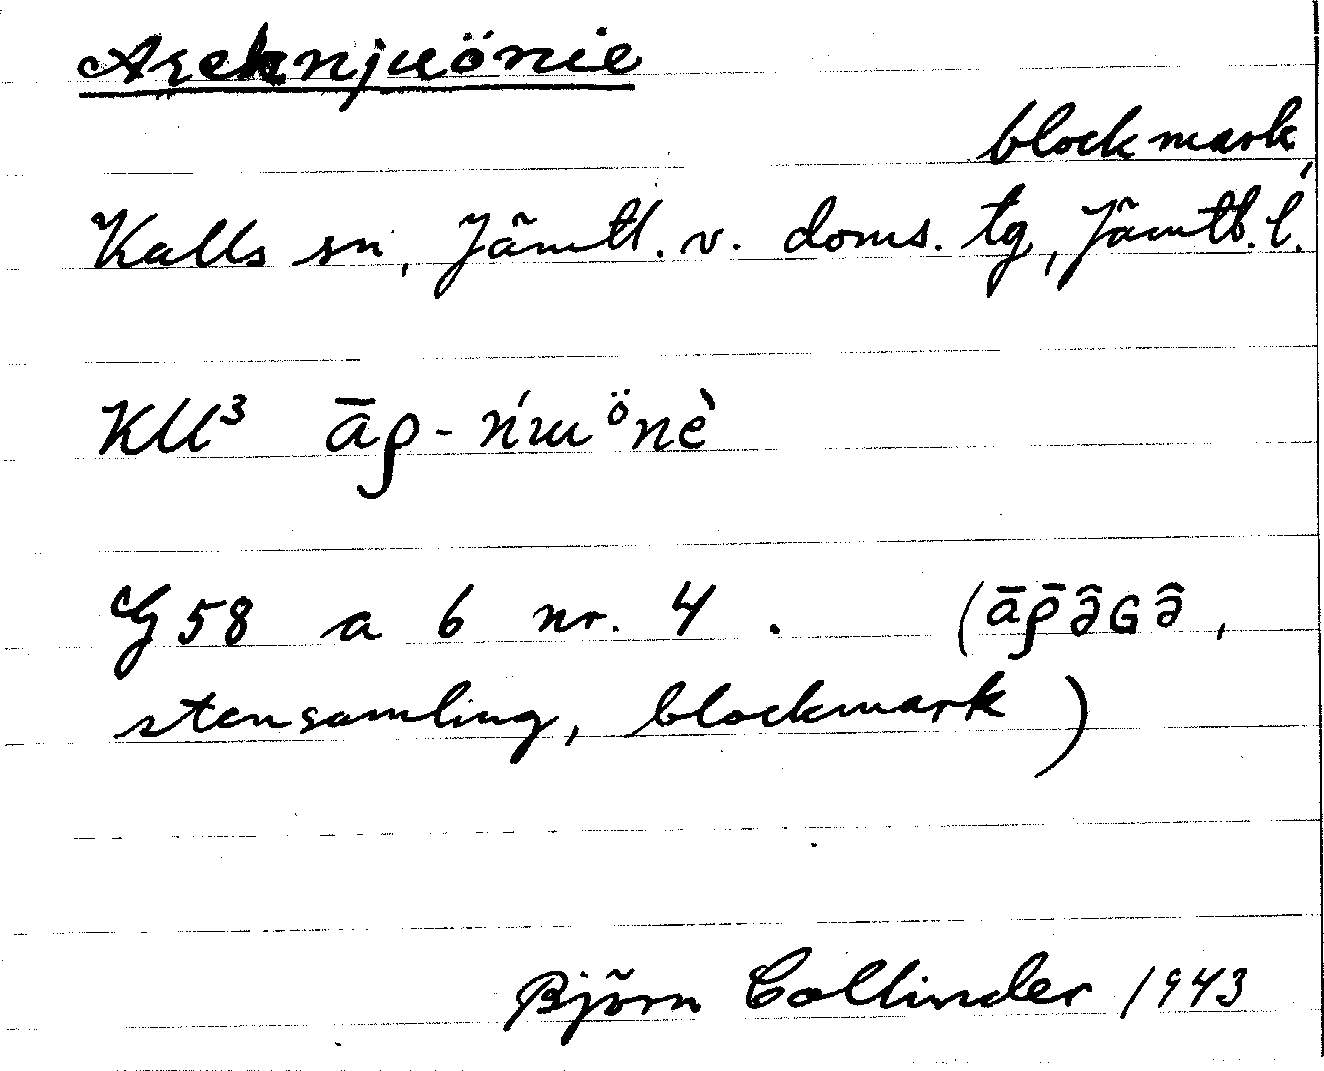 Arehnjuönie
blockmark,
Kalls sn, Jämtl. v. doms. tg, Jämtl. l.
KU³ āρ-ńɯᵒ̈nè
G 58 a 6 nr. 4. (āρ̄ə̂Gə̂,
stensamling, blockmark)
Björn Collinder 1943